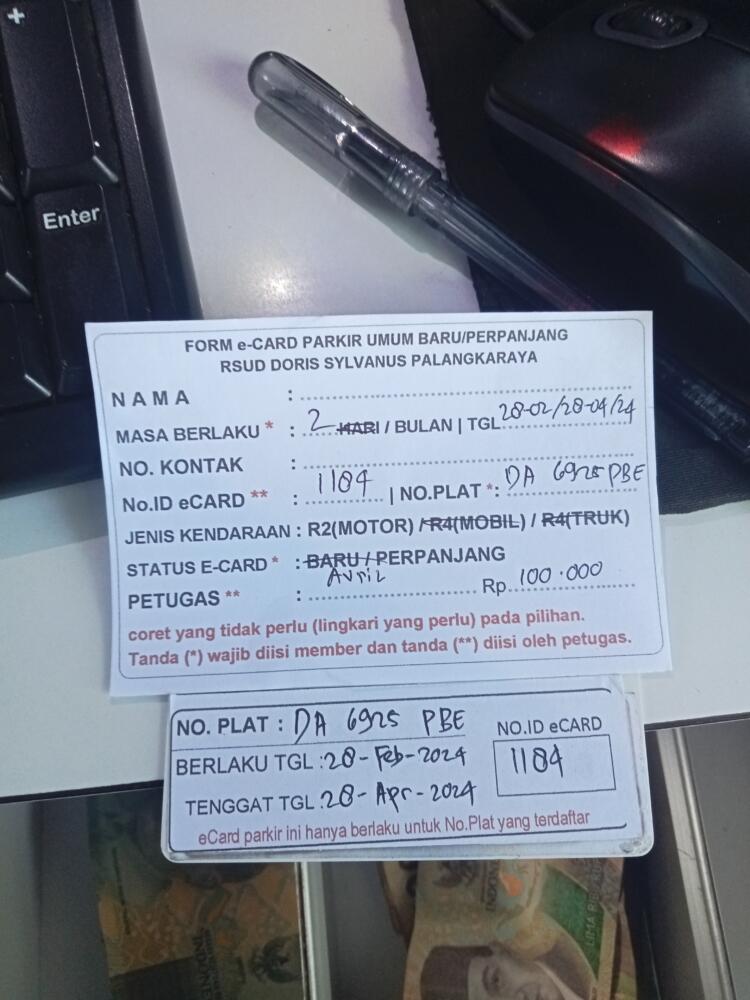 +
Enter
FORM e-CARD PARKIR UMUM BARU/PERPANJANG
RSUD DORIS SYLVANUS PALANGKARAYA
NAMA :
MASA BERLAKU * : 2 HARI / BULAN | TGL 28-02/28-04/24
NO. KONTAK :
No.ID eCARD ** : 1184 | NO.PLAT *: DA 6925 PBE
JENIS KENDARAAN : R2(MOTOR) / R4(MOBIL) / R4(TRUK)
STATUS E-CARD * : BARU / PERPANJANG
PETUGAS ** : Avril Rp. 100.000
coret yang tidak perlu (lingkari yang perlu) pada pilihan.
Tanda (*) wajib diisi member dan tanda (**) diisi oleh petugas.
NO. PLAT : DA 6925 PBE
NO.ID eCARD
BERLAKU TGL : 28-Feb-2024
1184
TENGGAT TGL : 28-Apr-2024
eCard parkir ini hanya berlaku untuk No.Plat yang terdaftar